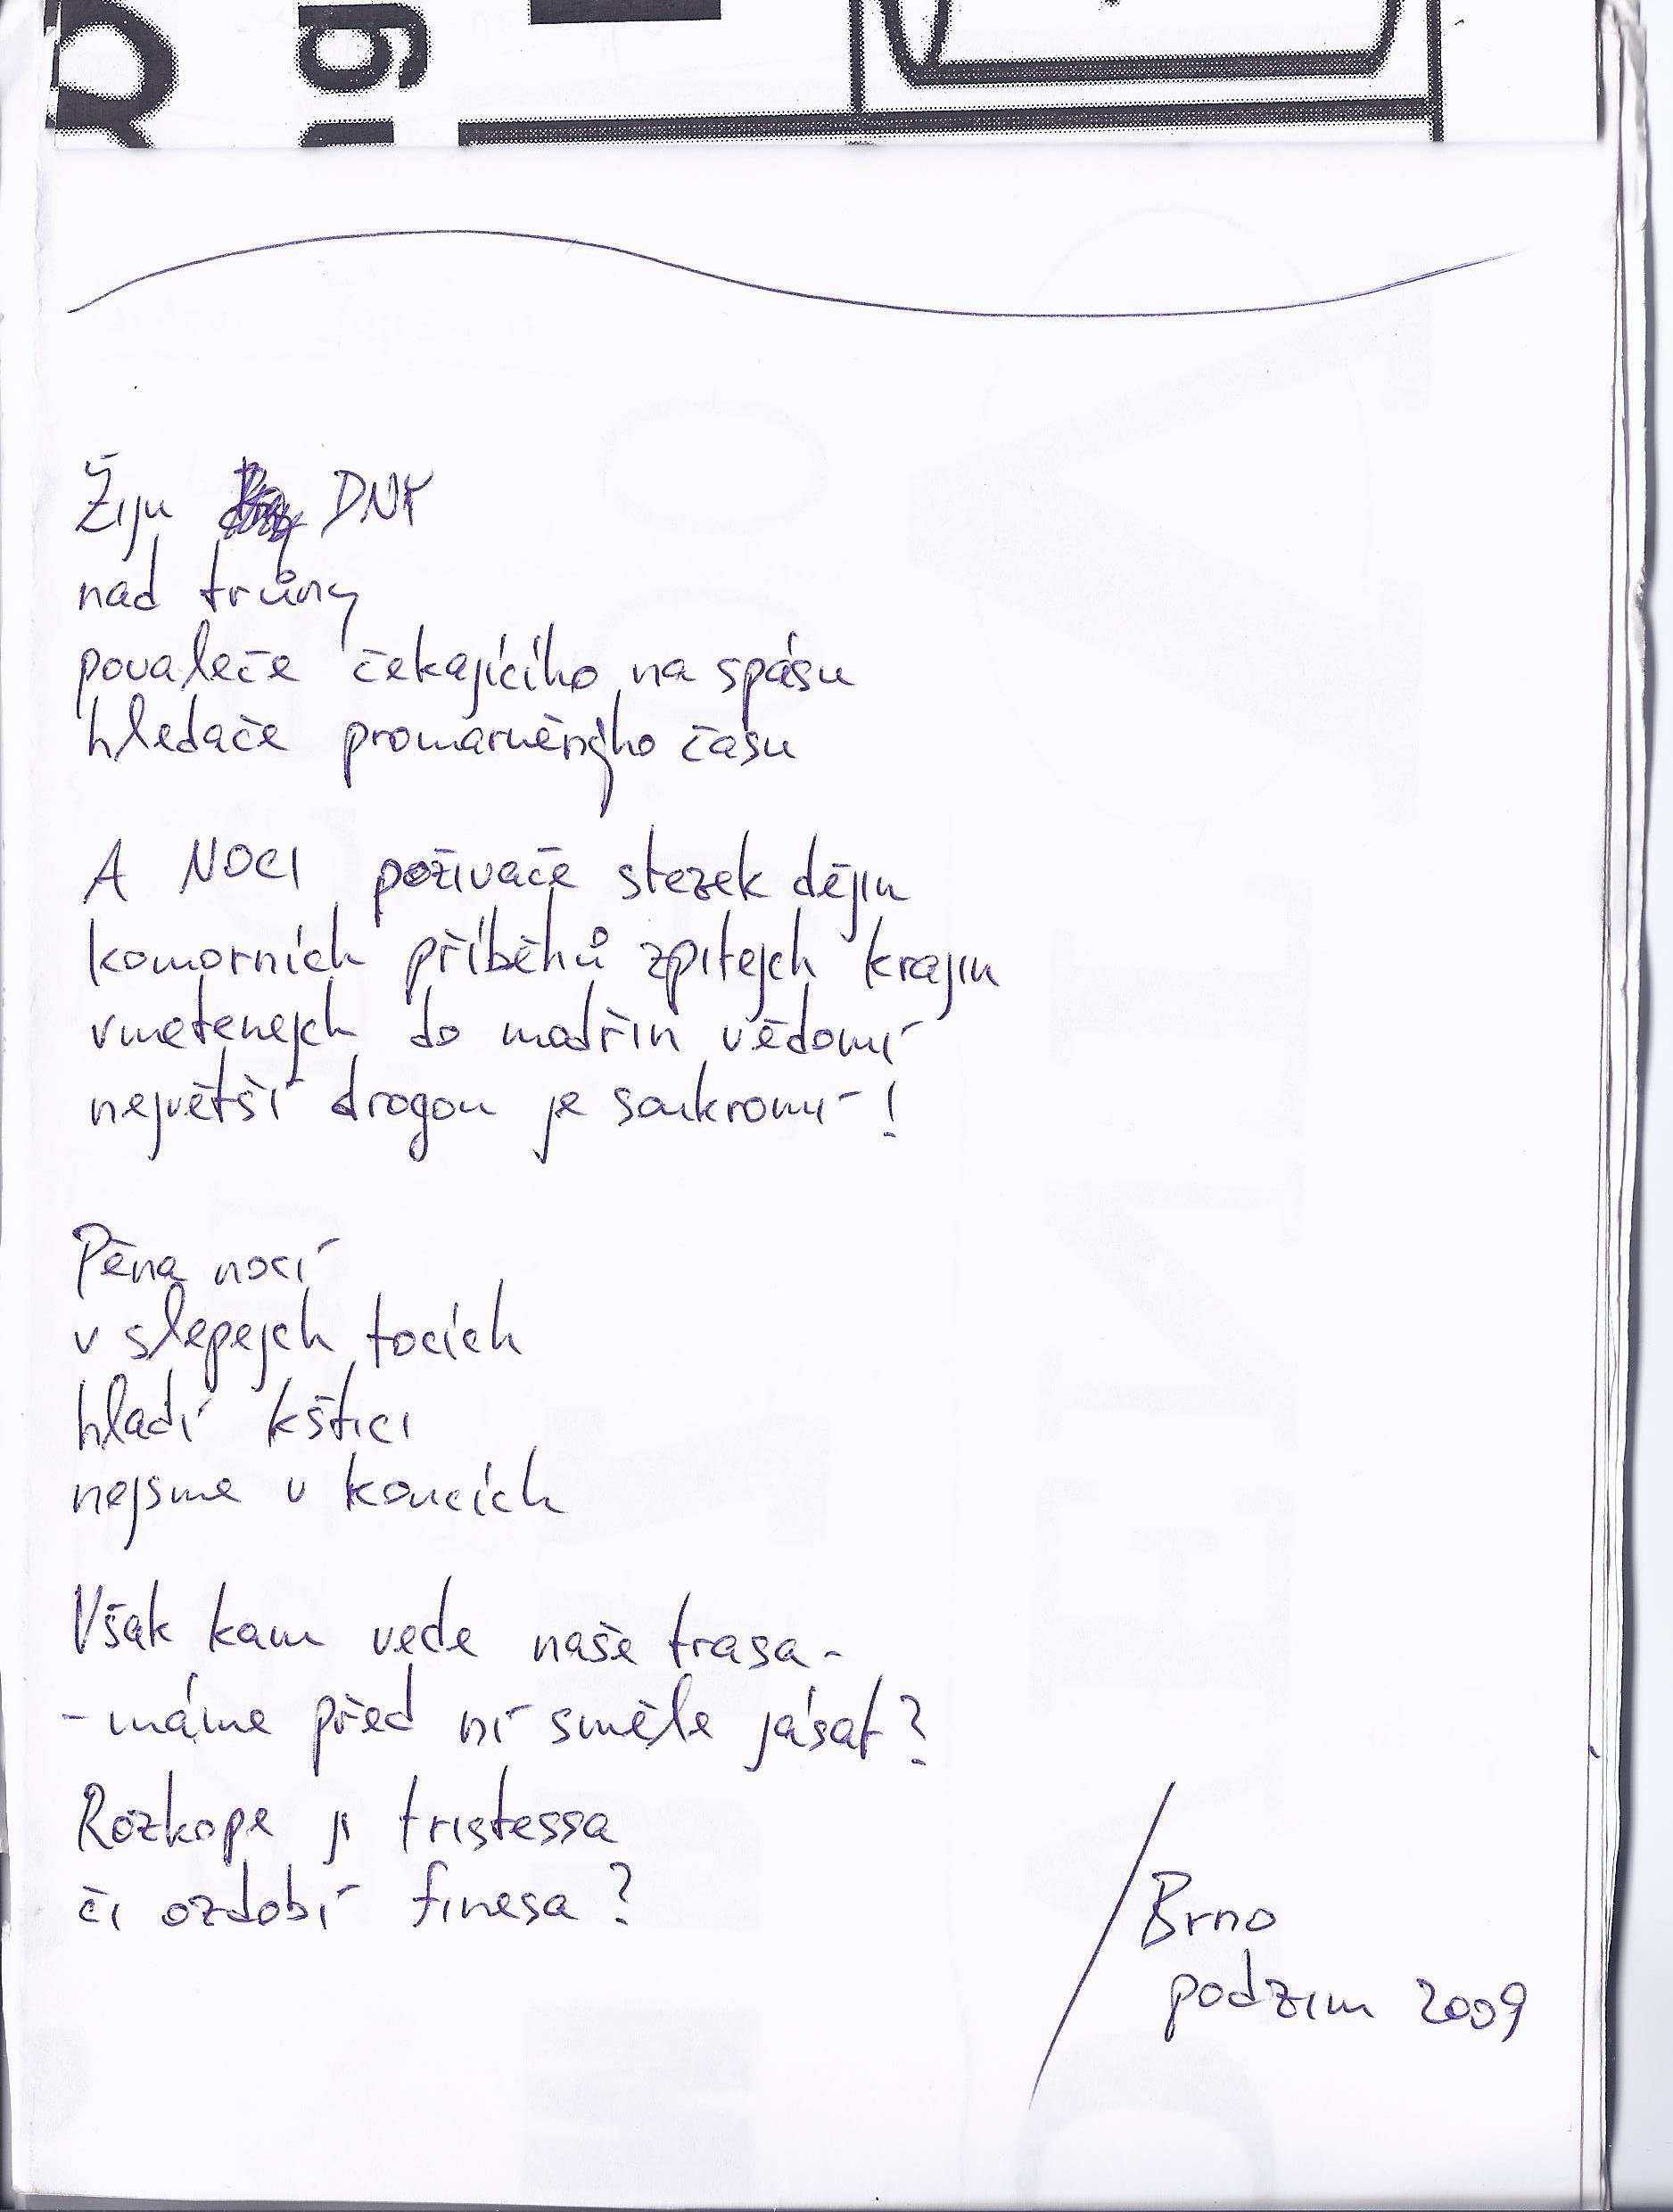 Žiju DNY
nad trůny
povaleče čekajícího na spásu
hledače promarněnýho času
A NOCI poživače stezek dějin
komorních příběhů zpitejch krajin
vmetenejch do modřin vědomí
největší drogou je soukromí!
Pěna nocí
v slepejch tocích
hladí kštici
nejsme v koncích
Však kam vede naše trasa-
-máme před ní směle jásat?
Rozkope ji tristessa
či ozdobí finesa?
Brno
podzim 2009